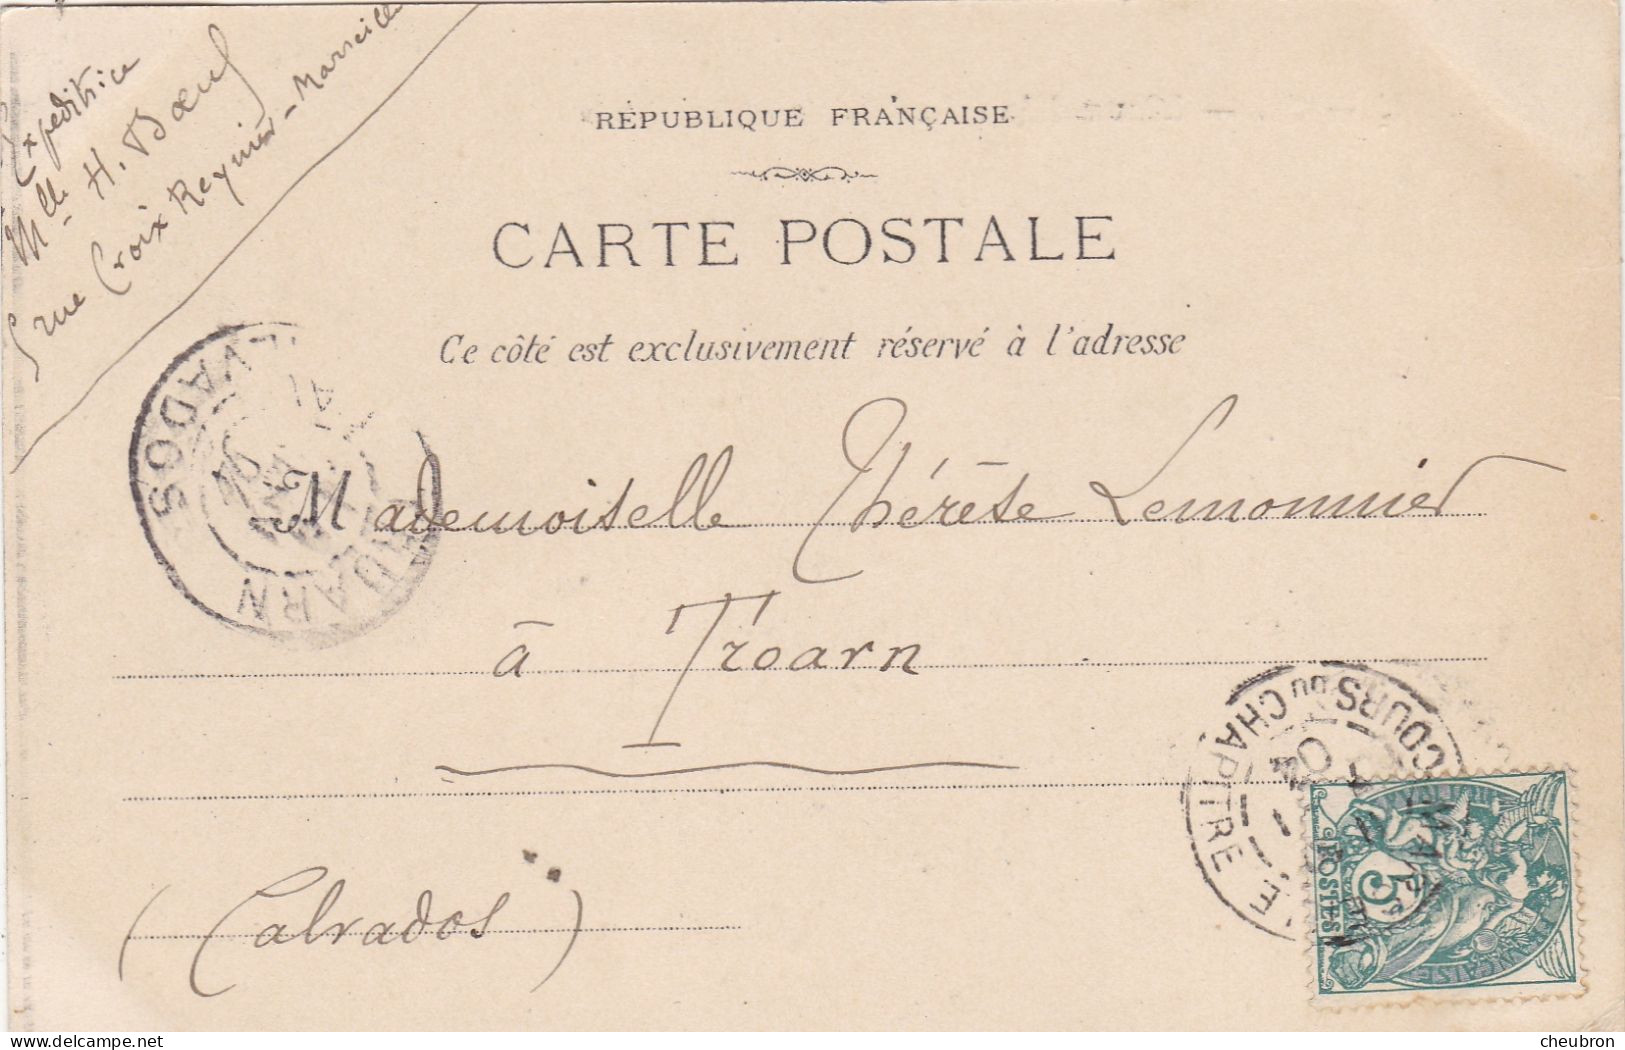 Expéditrice
Mlle H. Bœuf
5 rue Croix Reynier - Marseille
RÉPUBLIQUE FRANÇAISE
CARTE POSTALE
Ce côté est exclusivement réservé à l'adresse
Mademoiselle Thérèse Lemonnier
à Troarn
(Calvados)
TROARN
CALVADOS
COURS DU CHAPITRE
04
5
POSTES
cheubron